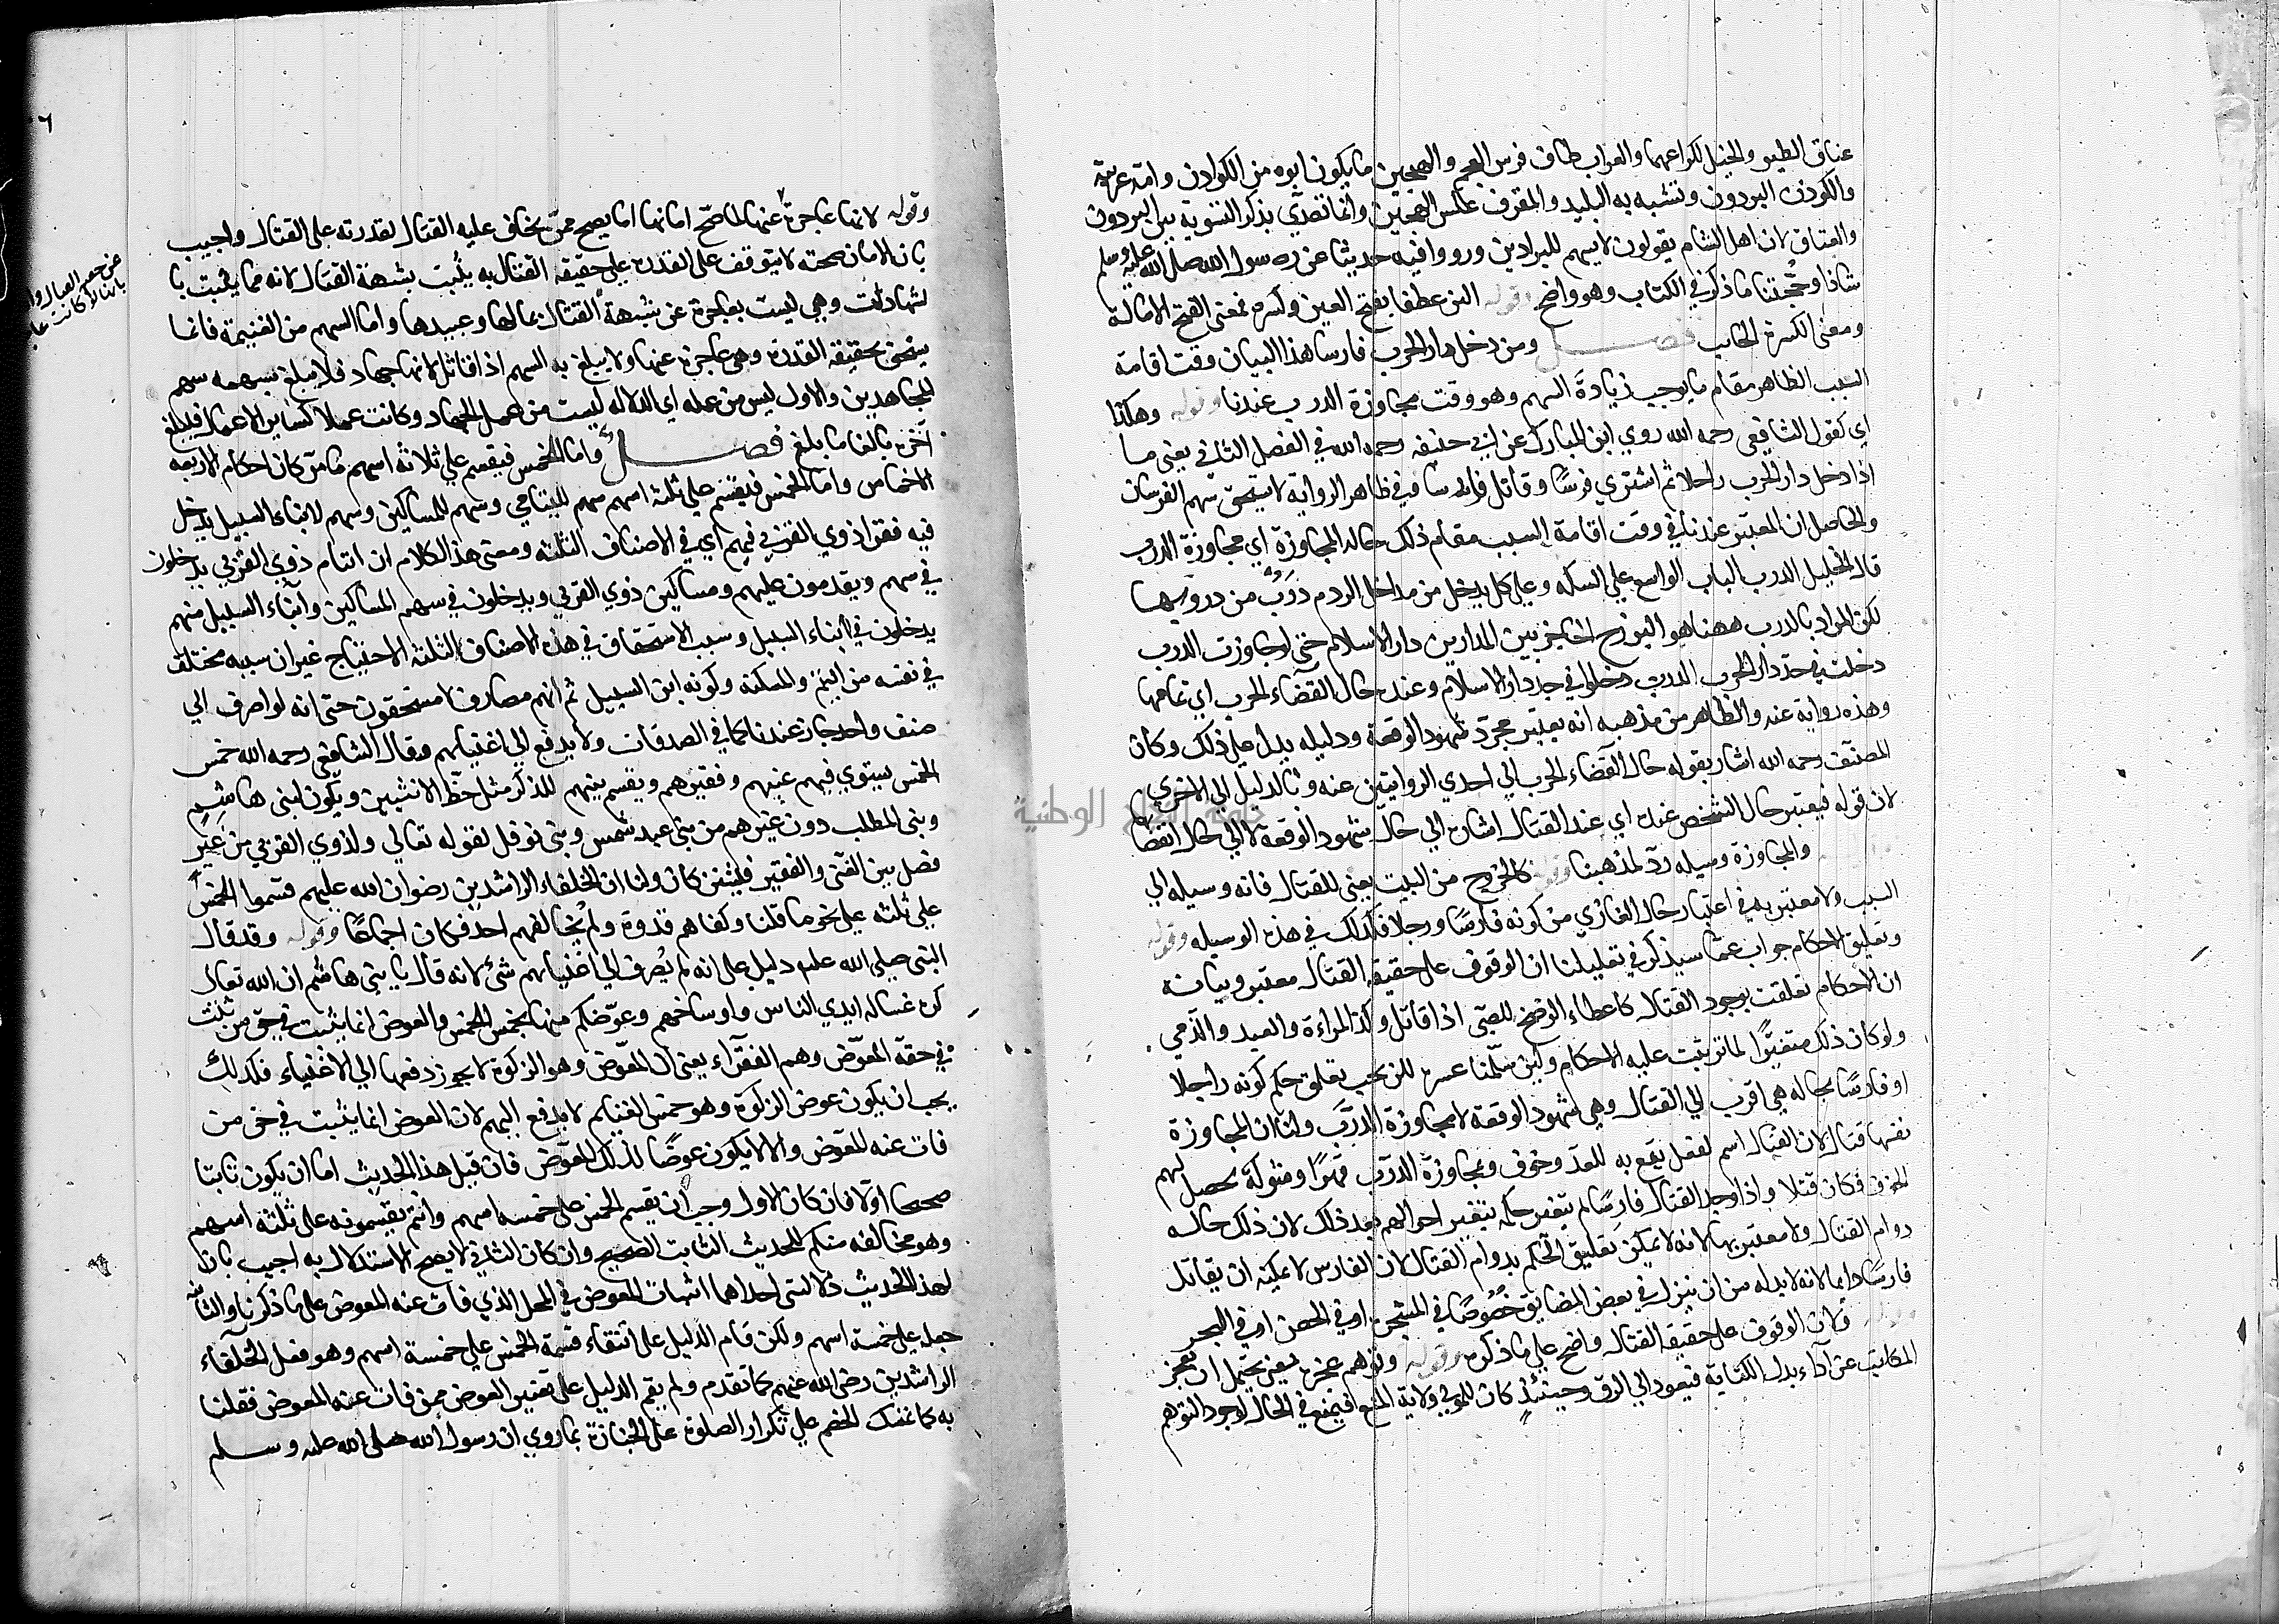 عناق الطير والخيل لكراعهما والعراب خلاف فرس العجم والهجين ما يكون ابوه من الكوادن وامه عربية
والكودن البردون وتشبه به البليد والمقرف عكس الهجين وانما تصدي بذكر التسوية بين البردون
والعتاق لان اهل الشام يقولون لا يسهم للبرادين ورووا فيه حديثا عن رسول الله صلى الله عليه وسلم
شاذا وحجتنا ما ذكر في الكتاب وهو واضح وقوله الين عطفا بفتح العين وكسره فمعنى الفتح الامالة
ومعنى الكسرة الجانب فصل ومن دخل دار الحرب فارسا هذا البيان وقت اقامة
السبب الظاهر مقام ما يوجب زيادة السهم وهو وقت مجاوزة الدرب عندنا وقوله وهكذا
اي كقول الشافعي رحمه الله روي ابن المبارك عن ابي حنيفه رحمه الله في الفصل الثاني يعني ما
اذا دخل دار الحرب راجلا ثم اشتري فرسا وقاتل فارسا ففي ظاهر الرواية لا يستحق سهم الفرسان
والحاصل ان المعتبر عندنا في وقت اقامة السبب مقام ذلك حاله المجاوزة اي مجاوزة الدرب
قال الخليل الدرب الباب الواسع علي السكه وعلي كل يدخل من مداخل الردم درب من دروبها
لكن المراد بالدرب ههنا هو البرزخ الحاجز بين الدارين دار الاسلام حتى لو جاوزت الدرب
دخلت في حد دار الحرب الدرب دخلوا في حد دار الاسلام وعند حال القضاء الحرب اي تمامها
وهذه رواية عنه والظاهر من مذهبه انه يعتبر مجرد شهود الوقعة ودليله يدل علي ذلك وكان
المصنف رحمه الله اشار بقوله حال القضاء الحرب الي احدي الروايتين عنه وبالدليل الي الاخري
لان قوله فيعتبر حال الشخص عنده اي عند القتال اشارة الي حال شهود الوقعة لا الي حال انقضا
والمجاوزة وسيله رد لمذهبنا وقوله كالخروج من البيت يعني للقتال فانه وسيله الي
السبب ولا معتبر به في اعتبار حال الغازي من كونه فارسا وراجلا فكذلك في هذه الوسيله وقوله
وتعليق الاحكام جواب عما سيذكر في تعليلنا ان الوقوف على حقيقة القتال معتبر وبيانه
ان الاحكام تعلقت بوجود القتال كاعطاء الرضخ للصبي اذا قاتل وكذا المراءة والعبد والذمي
ولو كان ذلك متعيرا لما ترتبت عليه الاحكام ولين سلمنا عسره لكن يجب تعلق حكم كونه راجلا
او فارسا بحاله هي اقرب الي القتال وهي شهود الوقعة لا مجاوزة الدرب ولنا ان المجاوزة
نفسها قتال لان القتال اسم لفعل يقع به للعدو خوف ومجاوزة الدرب قهرا وشوكة يحصل لهم
الخوف فكان قتلا واذا وجد القتال فارسا لم يتغير حكمه بتغير احوالهم بعد ذلك لان ذلك حاله
دوام القتال ولا معتبر بها لانه لا يمكن تعليق الحكم بدوام القتال لان الفارس لا يمكنه ان يقاتل
فارسا دايما لانه لا بد له من ان ينزل في بعض المضايق خصوصا في المشجر او في الحصن او في البحر
ولان الوقوف على حقيقة القتال واضح علي ما ذكره وقوله وتوهم عجزه يعني يحتمل ان يعجز
المكاتب عن آداء بدل الكتابة فيعود الي الرق وحينئذ كان للمولي ولاية المنع فيمنع في الحال لوجود التوهم
وقوله لانها عاجزة عنها لما صح امانها اما يصح ممن يخاف عليه القتال لقدرته على القتال واجيب
بان الامان صحته لا يتوقف على القدرة علي حقيقه القتال به يثبت بشبهة القتال لانه مما يثبت با
لشهادات وهي ليست بعاجزة عن شبهة القتال بمالها وعبيدها واما السهم من الغنيمة فانما
يستحق بحقيقة القدرة وهي عاجزة عنها ولا يبلغ به السهم اذا قاتل لانها جهاد فلا يبلغ بسهمه سهم
المجاهدين والاول ليس من عمله اي الدلاله ليست من عمل الجهاد وكانت عملا كساير الاعمال فيبلغ
آخره بالغا ما بلغ فصل واما الخمس فيقسم علي ثلاثة اسهم ما من كان احكام الاربعه
الاخماس واما الخمس فيقسم علي ثلثة اسهم سهم لليتامي وسهم للمساكين وسهم لابناء السبيل يدخل
فيه فقرا ذوي القربي فيهم اي في الاصناف الثلثه ومعني هذا الكلام ان ايتام ذوي القربي يدخلون
في سهم ويقدمون عليهم ومساكين ذوي القربي ويدخلون في سهم المساكين وابناء السبيل منهم
يدخلون في ابناء السبيل وسبب الاستحقاق في هذه الاصناف الثلثة الاحتياج غير ان سببه مختلف
في نفسه من اليتم والمسكنة وكونه ابن السبيل ثم انهم مصارف لا مستحقون حتى انه لو اصرف الي
صنف واحد جاز عندنا كما في الصدقات ولا يدفع الي اغنياهم وقال الشافعي رحمه الله خمس
الخمس يستوي فيهم غنيهم وفقيرهم ويقسم بينهم للذكر مثل حظ الانثيين ويكون لبني هاشم
وبني المطلب دون غيرهم من بني عبد شمس وبني نوفل لقوله تعالي ولذوي القربي من غير
فصل بين الغني والفقير فليثنن كان ولنا ان الخلفاء الراشدين رضوان الله عليهم قسموا الخمس
علي ثلثه علي نحو ما قلنا وكفاهم قدوة ولم يخالفهم احد فكان اجماعا وقوله وقد قال
النبي صلى الله عليه دليل على انه لم يصرف الي اغنياهم شئ لانه قال يا بني هاشم ان الله تعال
كره غساله ايدي الناس واوساخهم وعوضكم منها بخمس الخمس والعوض انما يثبت في حق من ثلث
في حقه المعوض وهم الفقرآء يعني ان المعوض وهو الزكوة لا يجوز دفعها الي الاغنياء فكذلك
يجب ان يكون عوض الزكوة وهو خمس الغنايم لا يدفع اليهم لان العوض انما يثبت في حق من
فات عنه المعوض والا لا يكون عوضا لذلك المعوض فان قيل هذا الحديث اما ان يكون ثابتا
صحيحا اولا فان كان الاول وجب ان يقسم الخمس على خمسه اسهم وانتم تقسمونه على ثلثة اسهم
وهو مخالفه منكم للحديث الثابت الصحيح وان كان الثاني لا يصح الاستدلال به اجيب بان
لهذا الحديث دلالتي احداهما اثبات العوض في المحل الذي فات عنه المعوض على ما ذكرنا والثانيه
جعله علي خمسة اسهم ولكن قام الدليل على انتفاء قسمة الخمس علي خمسة اسهم وهو فعل الخلفاء
الراشدين رضي الله عنهم كما تقدم ولم يقم الدليل على تغيير العوض ممن فات عنه المعوض فقلنا
به كما تمسك الخصم علي تكرار الصلوة على الجنازة بما روي ان رسول الله صلى الله عليه وسلم